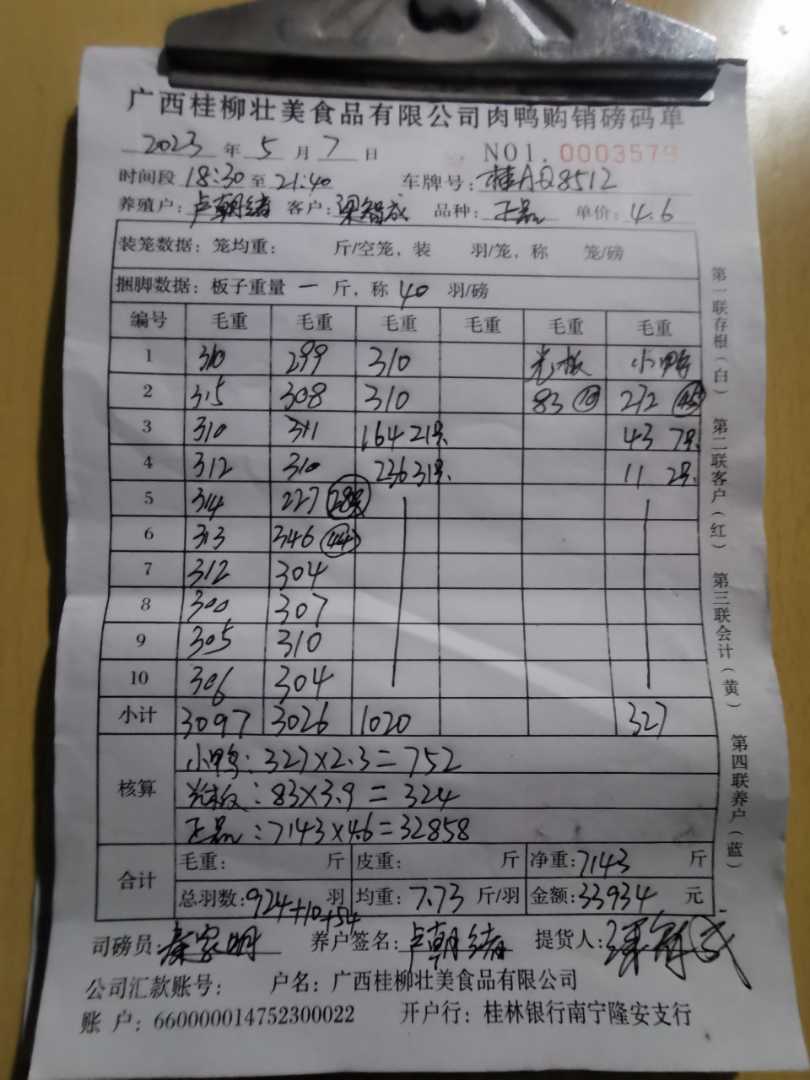 广西桂柳壮美食品有限公司肉鸭购销磅码单
2023 年 5 月 7 日 NO1. 0003579
时间段 18:30 至 21:40 车牌号: 桂AQ8512
养殖户: 卢朝绪 客户: 梁智成 品种: 正品 单价: 4.6
装笼数据: 笼均重: 斤/空笼, 装 羽/笼, 称 笼/磅
捆脚数据: 板子重量 一 斤, 称 40 羽/磅
编号 毛重 毛重 毛重 毛重 毛重 毛重
1 310 299 310 光板 小鸭
2 315 308 310 83 10 272 45
3 310 311 164 21只 43 7只
4 312 310 236 31只 11 2只
5 314 227 28只
6 313 346 44
7 312 304
8 300 307
9 305 310
10 306 304
小计 3097 3026 1020 327
核算 小鸭: 327×2.3=752
光板: 83×3.9=324
正品: 7143×4.6=32858
合计 毛重: 斤 皮重: 斤 净重: 7143 斤
总羽数: 924+10+54 羽 均重: 7.73 斤/羽 金额: 33934 元
司磅员: 秦家明 养户签名: 卢朝绪 提货人: 梁智成
公司汇款账号: 户名: 广西桂柳壮美食品有限公司
账 户: 660000014752300022 开户行: 桂林银行南宁隆安支行
第一联存根(白) 第二联客户(红) 第三联会计(黄) 第四联养户(蓝)